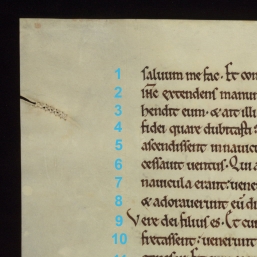 1 saluum me fac. Et con
2 iħc extendens manum
3 hendit eum. & ait illi
4 fidei quare dubitasti
5 ascendissent in nauic
6 cessauit uentus. Qui a
7 nauicula erant: uene
8 & adorauerunt eū di
9 Vere dei filius es. Et cum
10 fretassent: uenerunt